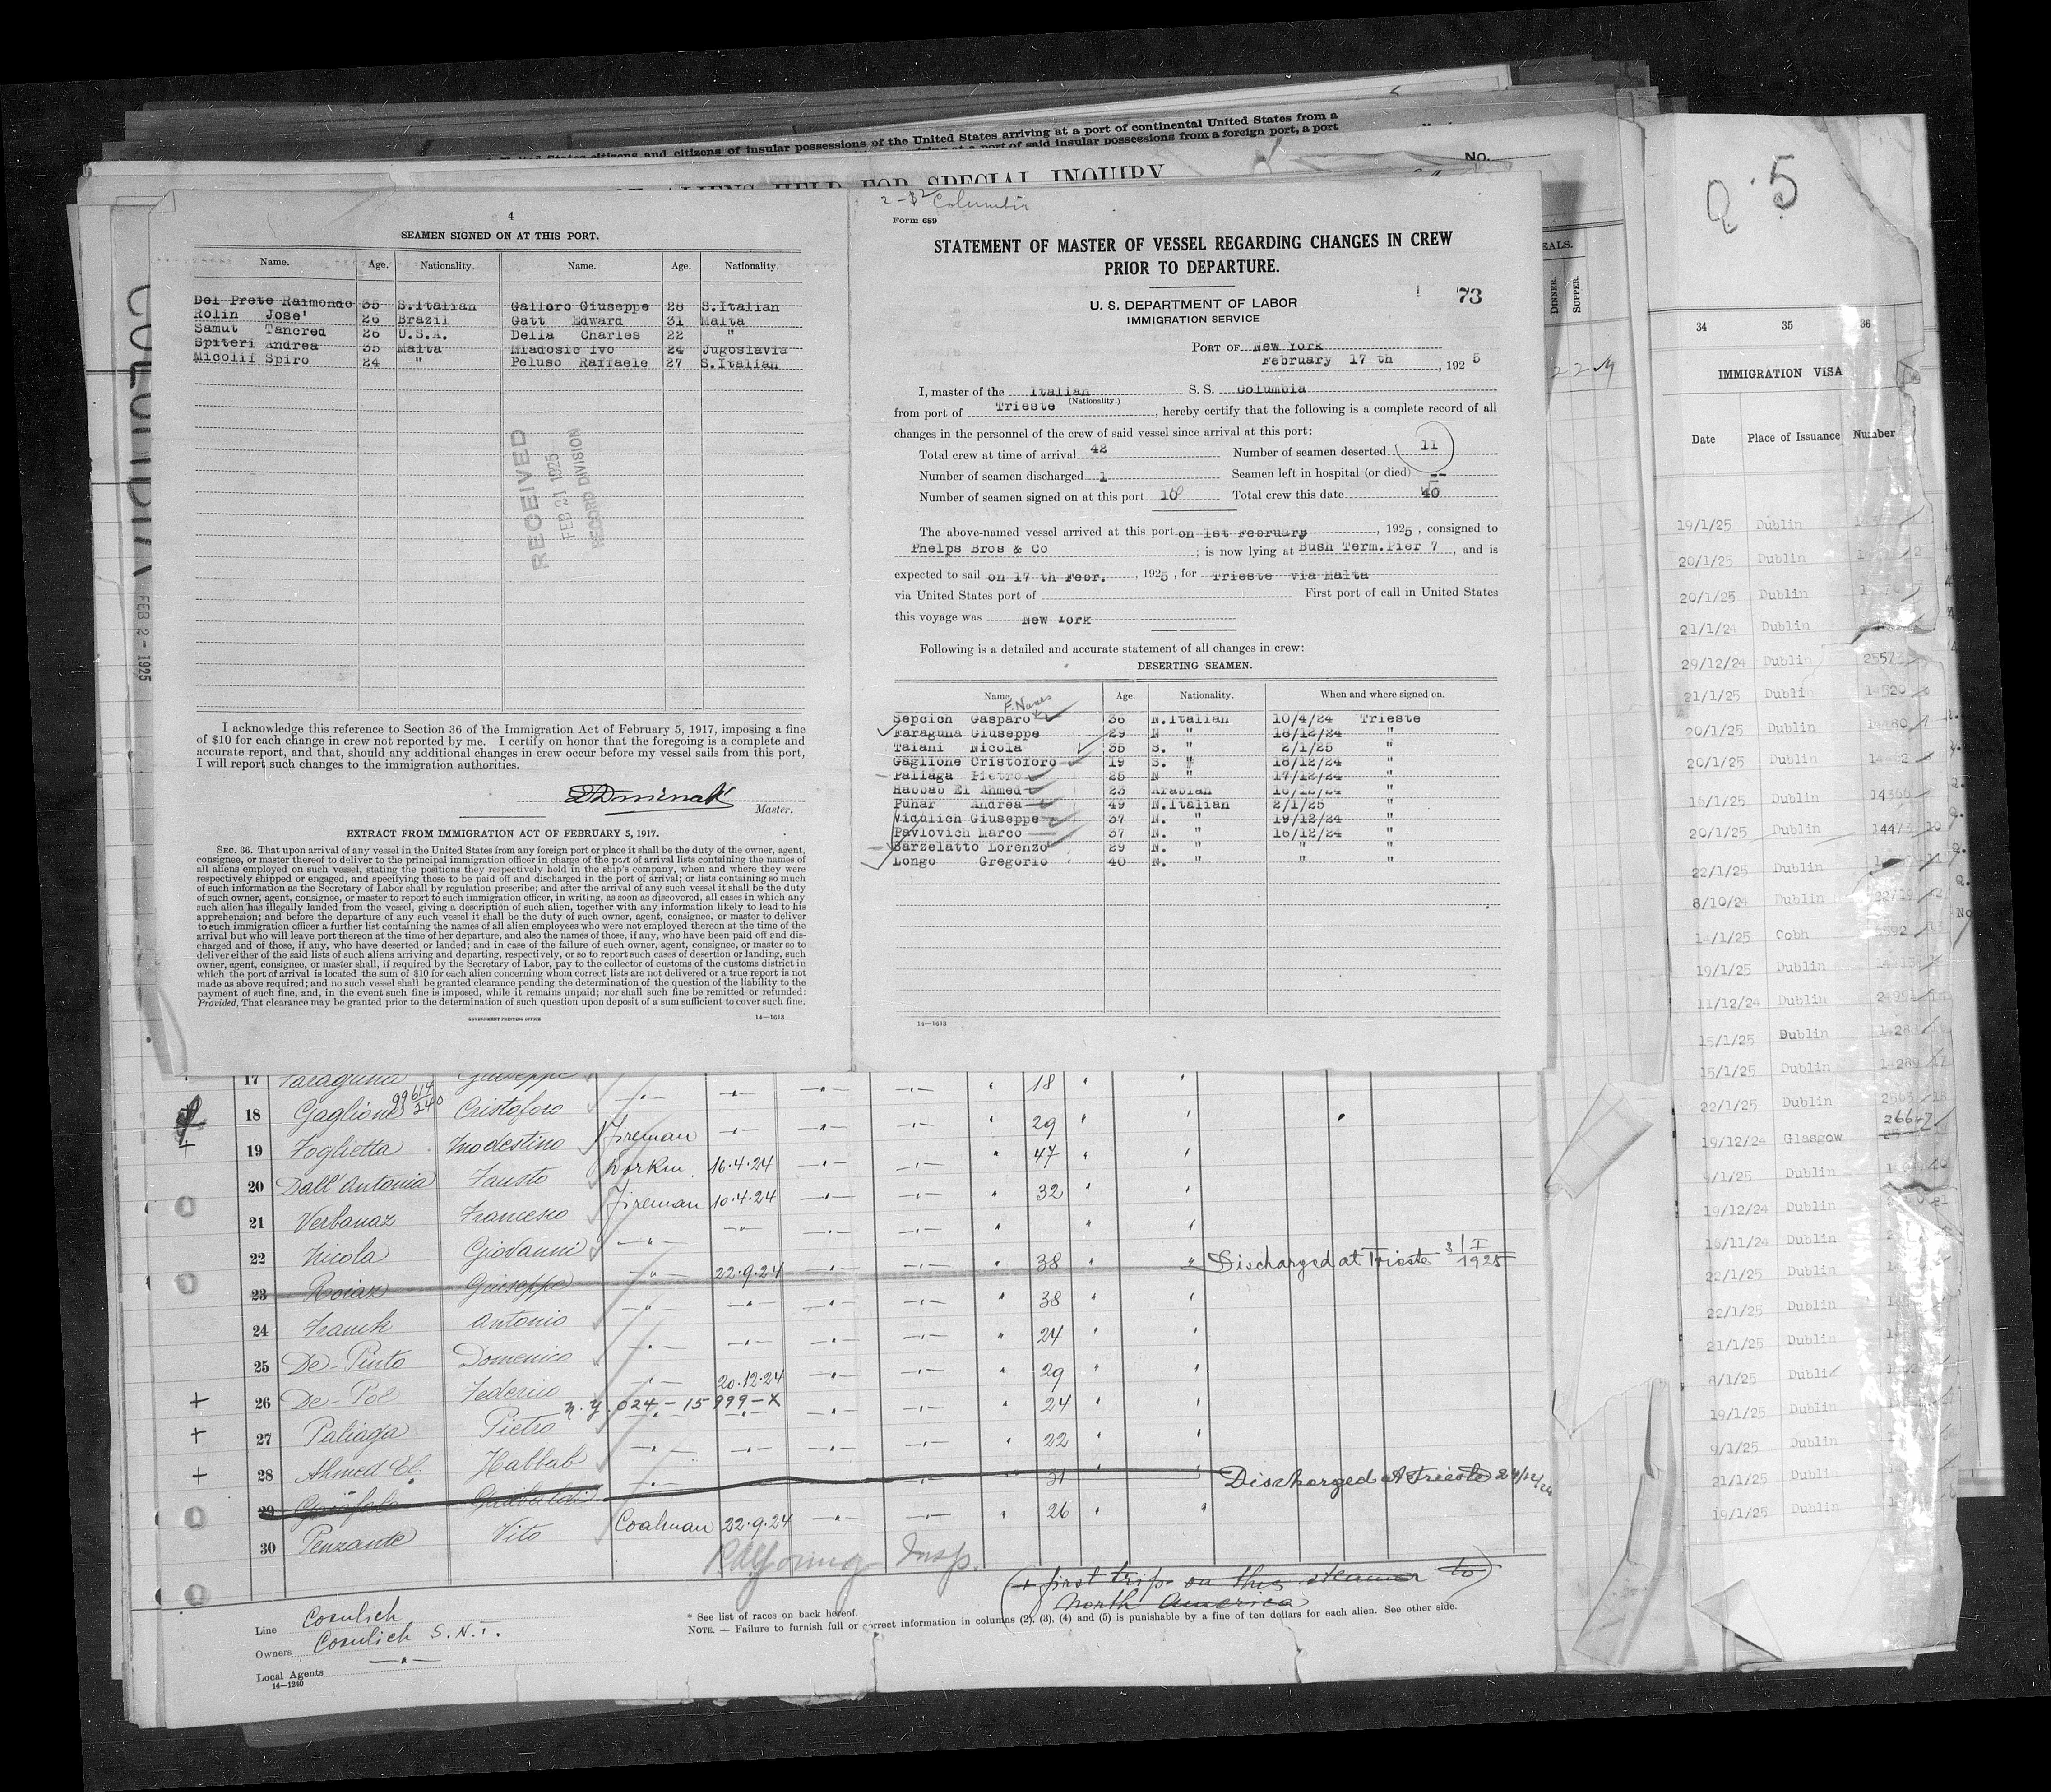 United States citizens and citizens of insular possessions of the United States arriving at a port of continental United States from a
at a port of said insular possessions from a foreign port, a port
No.
OF ALIENS HELD FOR SPECIAL INQUIRY
4
SEAMEN SIGNED ON AT THIS PORT.
Name. Age. Nationality. Name. Age. Nationality.
Del Prete Raimondo 35 S.Italian Galloro Giuseppe 28 S.Italian
Rolin Jose' 26 Brazil Gatt Edward 31 Malta
Samut Tancred 26 U.S.A. Delia Charles 22 "
Spiteri Andrea 35 Malta Mladosic Ivo 24 Jugoslavia
Micolif Spiro 24 " Peluso Raffaele 27 S.Italian
RECEIVED
FEB 21 1925
RECORD DIVISION
I acknowledge this reference to Section 36 of the Immigration Act of February 5, 1917, imposing a fine
of $10 for each change in crew not reported by me. I certify on honor that the foregoing is a complete and
accurate report, and that, should any additional changes in crew occur before my vessel sails from this port,
I will report such changes to the immigration authorities.
Master.
EXTRACT FROM IMMIGRATION ACT OF FEBRUARY 5, 1917.
SEC. 36. That upon arrival of any vessel in the United States from any foreign port or place it shall be the duty of the owner, agent,
consignee, or master thereof to deliver to the principal immigration officer in charge of the port of arrival lists containing the names of
all aliens employed on such vessel, stating the positions they respectively hold in the ship's company, when and where they were
respectively shipped or engaged, and specifying those to be paid off and discharged in the port of arrival; or lists containing so much
of such information as the Secretary of Labor shall by regulation prescribe; and after the arrival of any such vessel it shall be the duty
of such owner, agent, consignee, or master to report to such immigration officer, in writing, as soon as discovered, all cases in which any
such alien has illegally landed from the vessel, giving a description of such alien, together with any information likely to lead to his
apprehension; and before the departure of any such vessel it shall be the duty of such owner, agent, consignee, or master to deliver
to such immigration officer a further list containing the names of all alien employees who were not employed thereon at the time of the
arrival but who will leave port thereon at the time of her departure, and also the names of those, if any, who have been paid off and dis-
charged and of those, if any, who have deserted or landed; and in case of the failure of such owner, agent, consignee, or master so to
deliver either of the said lists of such aliens arriving and departing, respectively, or so to report such cases of desertion or landing, such
owner, agent, consignee, or master shall, if required by the Secretary of Labor, pay to the collector of customs of the customs district in
which the port of arrival is located the sum of $10 for each alien concerning whom correct lists are not delivered or a true report is not
made as above required; and no such vessel shall be granted clearance pending the determination of the question of the liability to the
payment of such fine, and, in the event such fine is imposed, while it remains unpaid; nor shall such fine be remitted or refunded:
Provided, That clearance may be granted prior to the determination of such question upon deposit of a sum sufficient to cover such fine.
GOVERNMENT PRINTING OFFICE 14—1613
Columbia
Form 689
STATEMENT OF MASTER OF VESSEL REGARDING CHANGES IN CREW
PRIOR TO DEPARTURE.
U. S. DEPARTMENT OF LABOR
IMMIGRATION SERVICE
73
PORT OF New York
February 17 th, 1925
I, master of the Italian S. S. Columbia
(Nationality.)
from port of Trieste, hereby certify that the following is a complete record of all
changes in the personnel of the crew of said vessel since arrival at this port:
Total crew at time of arrival 42 Number of seamen deserted 11
Number of seamen discharged 1 Seamen left in hospital (or died) --
Number of seamen signed on at this port 10 Total crew this date 40
The above-named vessel arrived at this port on 1st February, 1925, consigned to
Phelps Bros & Co; is now lying at Bush Term.Pier 7, and is
expected to sail on 17 th Febr., 1925, for Trieste via Malta
via United States port of First port of call in United States
this voyage was New York
Following is a detailed and accurate statement of all changes in crew:
DESERTING SEAMEN.
Name. Age. Nationality. When and where signed on.
Sepcich Gasparo 36 N.Italian 10/4/24 Trieste
Faraguna Giuseppe 29 N " 18/12/24 "
Taiani Nicola 35 S. " 2/1/25 "
Gaglione Cristoforo 19 S. " 18/12/24 "
Paliaga Pietro 25 N " 17/12/24 "
Habbab El Ahmed 23 Arabian 16/12/24 "
Puhar Andrea 49 N.Italian 2/1/25 "
Viculich Giuseppe 37 N. " 19/12/24 "
Pavlovich Marco 37 N. " 16/12/24 "
Barzelatto Lorenzo 29 N. " " "
Longo Gregorio 40 N. " " "
14—1613
FEB 2 - 1925
17 Faraguna Giuseppe
18 Gaglione Cristoforo 18
19 Foglietta Modestino Fireman 29
20 Dall'Antonia Fausto Workm. 16.4.24 47
21 Verbanaz Francesco Fireman 10.4.24 32
22 Nicola Giovanni
23 Roiaz Giuseppe 22.9.24 38 Discharged at Trieste 3/I 1925
24 Franck Antonio 38
25 De-Pinto Domenico 24
26 De-Pol Federico 20.12.24 29
n.y. 024-15999-X
27 Paliaga Pietro 24
28 Ahmed El. Habbab 22
29 Garofalo Garibaldi 31 Discharged at Trieste 24/12/24
30 Penzante Vito Coalman 22.9.24 26
Insp.
(+ first trip on this steamer to
North America)
Line Cosulich
Owners Cosulich S.N.T.
Local Agents
14—1240
* See list of races on back hereof.
NOTE. — Failure to furnish full or correct information in columns (2), (3), (4) and (5) is punishable by a fine of ten dollars for each alien. See other side.
EALS.
DINNER.
SUPPER.
Q.5
34 35 36
IMMIGRATION VISA
Date Place of Issuance Number
19/1/25 Dublin
20/1/25 Dublin
20/1/25 Dublin
21/1/24 Dublin
29/12/24 Dublin 25573
21/1/25 Dublin 14520
20/1/25 Dublin 14480
20/1/25 Dublin
16/1/25 Dublin 14366
20/1/25 Dublin 14473 10
22/1/25 Dublin
8/10/24 Dublin 22719
14/1/25 Cobh
19/1/25 Dublin
11/12/24 Dublin
15/1/25 Dublin
15/1/25 Dublin 14289
22/1/25 Dublin
19/12/24 Glasgow 26647
9/1/25 Dublin
19/12/24 Dublin
16/11/24 Dublin
22/1/25 Dublin
22/1/25 Dublin
21/1/25 Dublin
8/1/25 Dublin
19/1/25 Dublin
9/1/25 Dublin
21/1/25 Dublin
19/1/25 Dublin